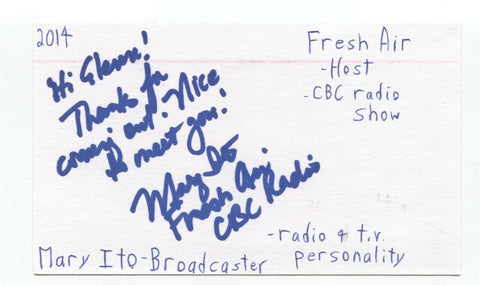 2014
Fresh Air
-Host
-CBC radio
show
Hi Glenn!
Thanks for
coming out! Nice
to meet you!
Mary Ito
Fresh Air
CBC Radio
-radio & t.v.
personality
Mary Ito-Broadcaster